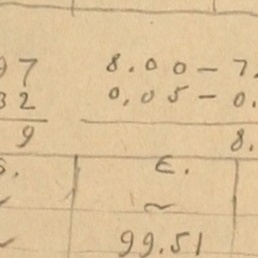 97 8.00 — 7.
32 0,05 — 0.
9 8.
S. E.
~ ~
~ 99.51